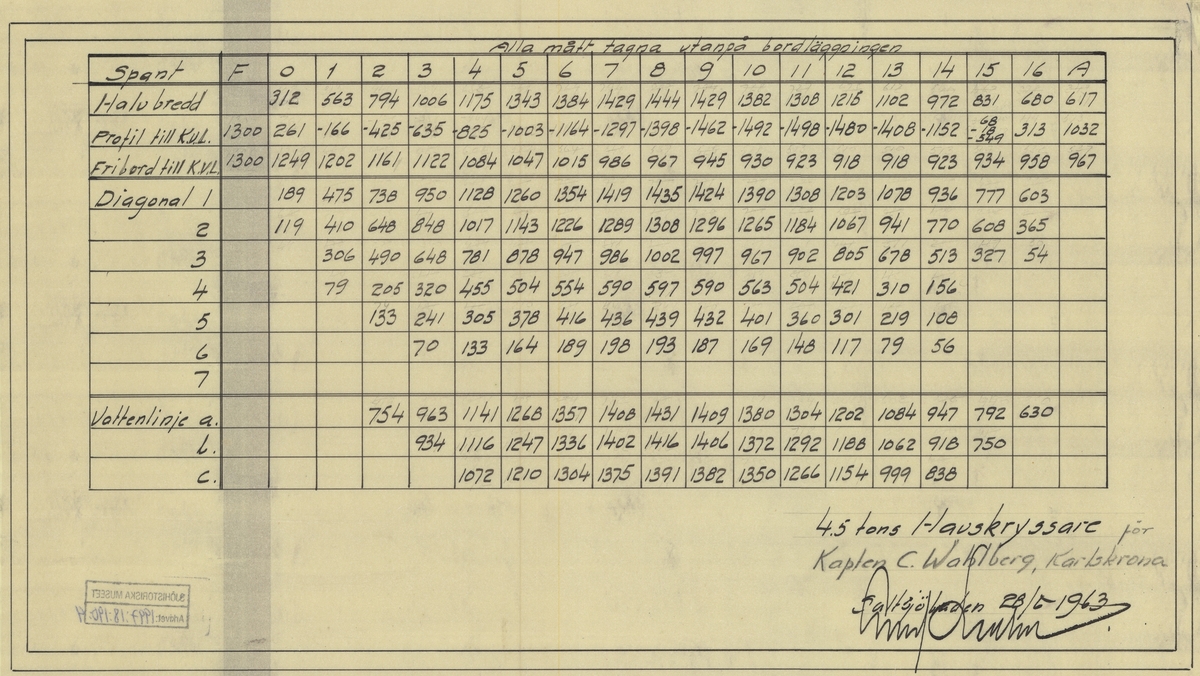 Alla mått tagna utanpå bordläggningen
Spant F 0 1 2 3 4 5 6 7 8 9 10 11 12 13 14 15 16 A
Halvbredd 312 563 794 1006 1175 1343 1384 1429 1444 1429 1382 1308 1215 1102 972 831 680 617
Profil till K.V.L. 1300 261 -166 -425 -635 -825 -1003 -1164 -1297 -1398 -1462 -1492 -1498 -1480 -1408 -1152 -68 -18 -549 313 1032
Fribord till K.V.L. 1300 1249 1202 1161 1122 1084 1047 1015 986 967 945 930 923 918 918 923 934 958 967
Diagonal 1 189 475 738 950 1128 1260 1354 1419 1435 1424 1390 1308 1203 1078 936 777 603
2 119 410 648 848 1017 1143 1226 1289 1308 1296 1265 1184 1067 941 770 608 365
3 306 490 648 781 878 947 986 1002 997 967 902 805 678 513 327 54
4 79 205 320 455 504 554 590 597 590 563 504 421 310 156
5 133 241 305 378 416 436 439 432 401 360 301 219 108
6 70 133 164 189 198 193 187 169 148 117 79 56
7
Vattenlinje a. 754 963 1141 1268 1357 1408 1431 1409 1380 1304 1202 1084 947 792 630
b. 934 1116 1247 1336 1402 1416 1406 1372 1292 1188 1062 918 750
c. 1072 1210 1304 1375 1391 1382 1350 1266 1154 999 838
4.5 tons Havskryssare för
Kapten C. Wahlberg, Karlskrona
Saltsjöbaden 28/5-1963
SJÖHISTORISKA MUSEET
Arkivet: 1997:18:190:4